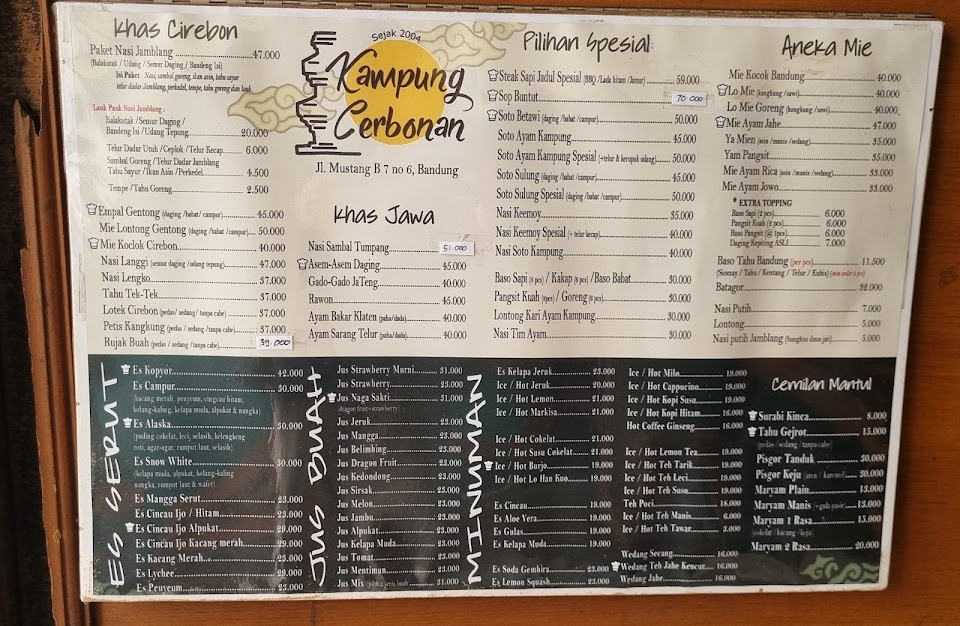 Khas Cirebon
Paket Nasi Jamblang 47.000
(Balakutak / Udang / Semur Daging / Bandeng Isi)
Isi Paket Nasi, sambal goreng, ikan asin, tahu sayur
telur dadar Jamblang, perkedel, tempe, tahu goreng dan lauk.
Lauk Pauk Nasi Jamblang :
Balakutak /Semur Daging /
Bandeng Isi /Udang Tepung 20.000
Telur Dadar Utuh /Ceplok /Telur Kecap 6.000
Sambal Goreng /Telur Dadar Jamblang
Tahu Sayur /Ikan Asin /Perkedel 4.500
Tempe /Tahu Goreng 2.500
Empal Gentong (daging /babat/ campur) 45.000
Mie Lontong Gentong (daging /babat /campur) 50.000
Mie Koclok Cirebon 40.000
Nasi Langgi (semur daging /udang tepung) 47.000
Nasi Lengko 37.000
Tahu Tek-Tek 37.000
Lotek Cirebon (pedas/ sedang /tanpa cabe) 37.000
Petis Kangkung (pedas / sedang /tanpa cabe) 37.000
Rujak Buah (pedas / sedang /tanpa cabe) 39.000
Sejak 2004
Kampung
Cerbonan
Jl. Mustang B 7 no 6, Bandung
Khas Jawa
Nasi Sambal Tumpang 51.000
Asem-Asem Daging 45.000
Gado-Gado JaTeng 40.000
Rawon 45.000
Ayam Bakar Klaten (paha/dada) 40.000
Ayam Sarang Telur (paha/dada) 40.000
Pilihan Spesial
Steak Sapi Jadul Spesial (BBQ /Lada hitam /Jamur) 59.000
Sop Buntut 70.000
Soto Betawi (daging /babat /campur) 50.000
Soto Ayam Kampung 45.000
Soto Ayam Kampung Spesial (+telur & kerupuk udang) 50.000
Soto Sulung (daging /babat /campur) 45.000
Soto Sulung Spesial (daging /babat /campur) 50.000
Nasi Keemoy 35.000
Nasi Keemoy Spesial (+ telur kecap) 40.000
Nasi Soto Kampung 40.000
Baso Sapi (6 pcs) / Kakap (6 pcs) /Baso Babat 30.000
Pangsit Kuah (6pcs) / Goreng (6 pcs) 30.000
Lontong Kari Ayam Kampung 30.000
Nasi Tim Ayam 30.000
Aneka Mie
Mie Kocok Bandung 40.000
Lo Mie (kangkung /sawi) 40.000
Lo Mie Goreng (kangkung /sawi) 40.000
Mie Ayam Jahe 47.000
Ya Mien (asin /manis /sedang) 35.000
Yam Pangsit 35.000
Mie Ayam Rica (asin /manis /sedang) 33.000
Mie Ayam Jowo 33.000
* EXTRA TOPPING
Baso Sapi (2 pcs) 6.000
Pangsit Kuah (2 pcs) 6.000
Baso Pangsit (@ 1pcs) 6.000
Daging Kepiting ASLI 7.000
Baso Tahu Bandung (per pcs) 11.500
(Siomay / Tahu / Kentang / Telur / Kubis) (min order 3 pcs)
Batagor 32.000
Nasi Putih 7.000
Lontong 5.000
Nasi putih Jamblang (bungkus daun jati) 5.000
ES SERUT
Es Kopyor 42.000
Es Campur 30.000
(kacang merah, peuyeum, cingcau hitam,
kolang-kaling, kelapa muda, alpukat & nangka)
Es Alaska 30.000
(puding cokelat, leci, selasih, kelengkeng
roti, agar-agar, rumput laut, selasih)
Es Snow White 30.000
(kelapa muda, alpukat, kolang-kaling
nangka, rumput laut & wafer)
Es Mangga Serut 23.000
Es Cincau Ijo / Hitam 23.000
Es Cincau Ijo Alpukat 29.000
Es Cincau Ijo Kacang merah 29.000
Es Kacang Merah 23.000
Es Lychee 29.000
Es Peuyeum 23.000
JUS BUAH
Jus Strawberry Murni 31.000
Jus Strawberry 23.000
Jus Naga Sakti 31.000
(dragon fruit+strawberry)
Jus Jeruk 23.000
Jus Mangga 23.000
Jus Belimbing 23.000
Jus Dragon Fruit 23.000
Jus Kedondong 23.000
Jus Sirsak 23.000
Jus Melon 23.000
Jus Jambu 23.000
Jus Alpukat 23.000
Jus Kelapa Muda 23.000
Jus Tomat 23.000
Jus Mentimun 23.000
Jus Mix (pilih 2 jenis buah) 31.000
MINUMAN
Es Kelapa Jeruk 23.000
Ice / Hot Jeruk 20.000
Ice / Hot Lemon 21.000
Ice / Hot Markisa 21.000
Ice / Hot Cokelat 21.000
Ice / Hot Susu Cokelat 21.000
Ice / Hot Burjo 19.000
Ice / Hot Lo Han Kuo 19.000
Es Cincau 19.000
Es Aloe Vera 19.000
Es Gulas 19.000
Es Kelapa Muda 19.000
Es Soda Gembira 23.000
Es Lemon Squash 23.000
Ice / Hot Milo 19.000
Ice / Hot Cappucino 19.000
Ice / Hot Kopi Susu 19.000
Ice / Hot Kopi Hitam 16.000
Hot Coffee Ginseng 16.000
Ice / Hot Lemon Tea 19.000
Ice / Hot Teh Tarik 19.000
Ice / Hot Teh Leci 19.000
Ice / Hot Teh Susu 19.000
Teh Poci 18.000
Ice / Hot Teh Manis 6.000
Ice / Hot Teh Tawar 3.000
Wedang Secang 16.000
Wedang Teh Jahe Kencur 16.000
Wedang Jahe 16.000
Cemilan Mantul
Surabi Kinca 8.000
Tahu Gejrot 15.000
(pedas / sedang / tanpa cabe)
Pisgor Tanduk 30.000
Pisgor Keju (aren / karamel) 30.000
Maryam Plain 13.000
Maryam Manis (+gula pasir) 13.000
Maryam 1 Rasa 15.000
(cokelat / kacang /keju)
Maryam 2 Rasa 20.000